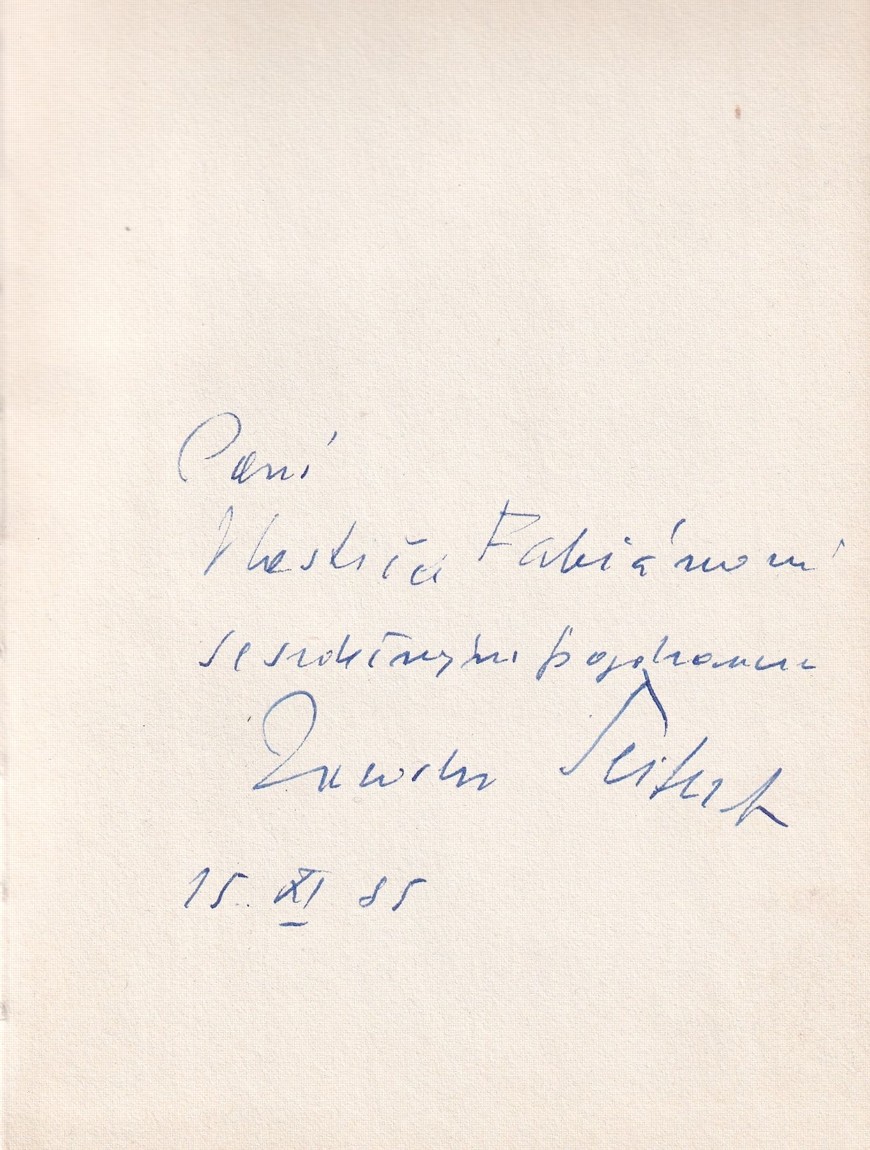 Paní
Fabiánové
se srdečným pozdravem
Jaroslav Seifert
15. XI 85